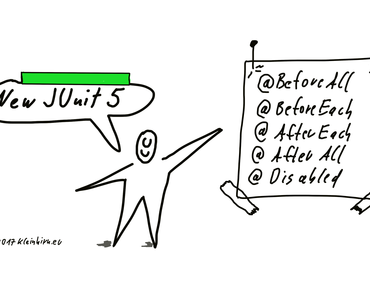 New JUnit 5
@BeforeAll
@BeforeEach
@AfterEach
@After All
@ Disabled
2017 kleinhirn.eu